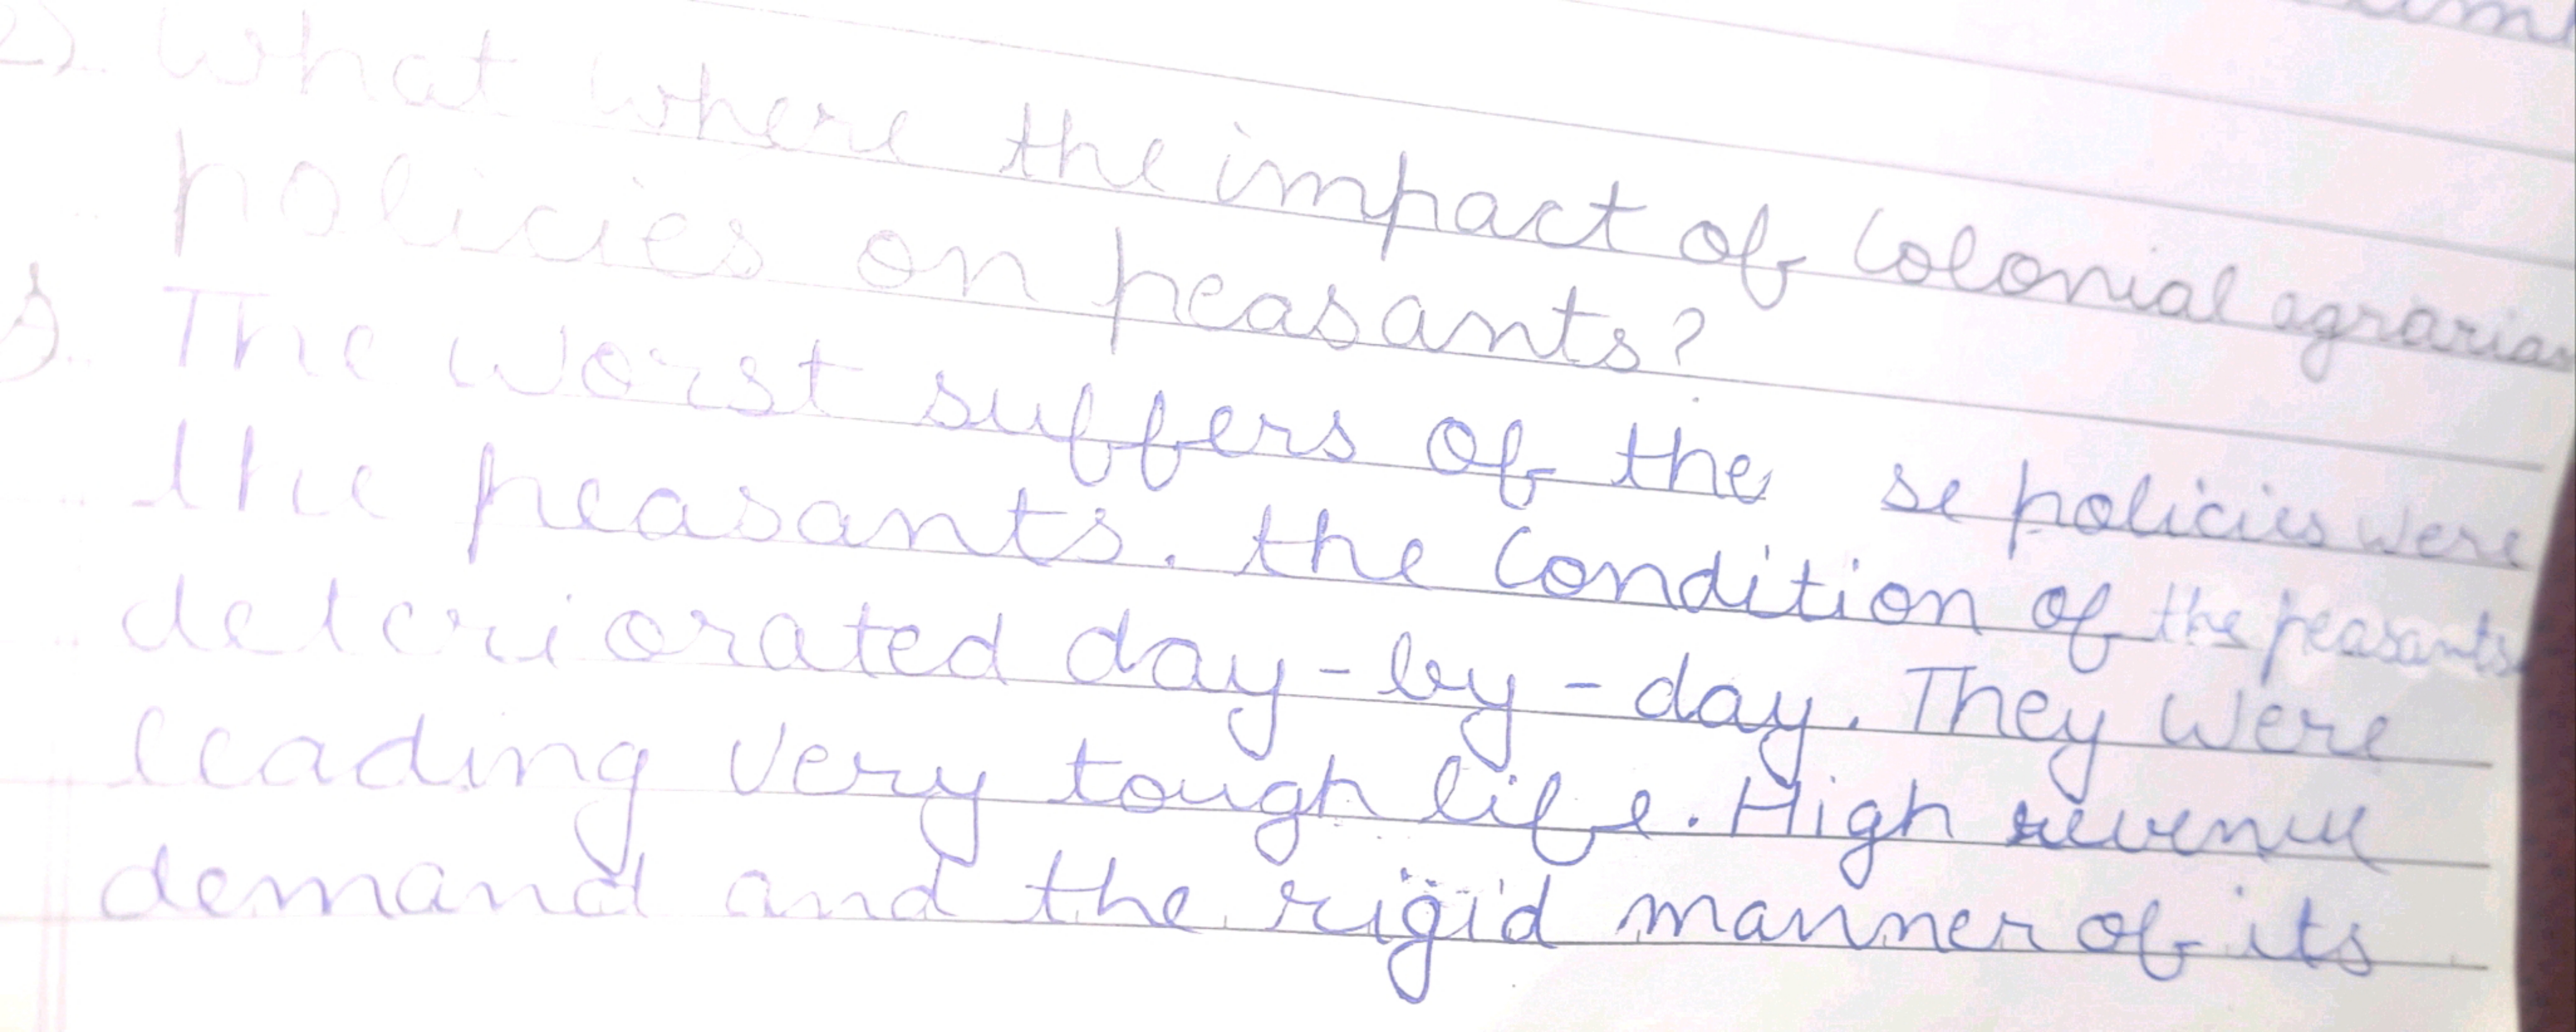 2). What where the impact of Colonial agrarian
policies on peasants?
The worst suffers of the se policies were
the peasants. the Condition of the peasants
deteriorated day-by-day. They were
leading Very tough life. High revenue
demand and the rigid manner of its